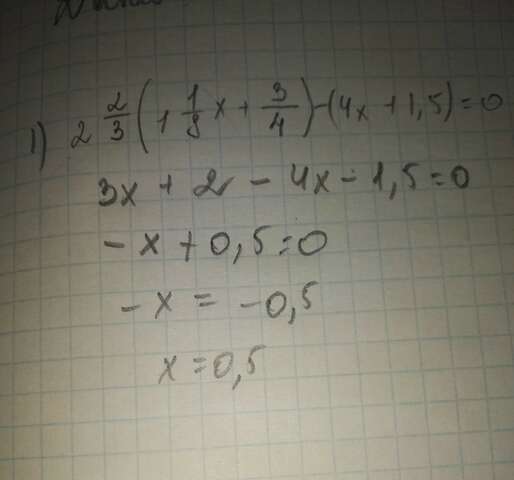 1) 2 2/3 (1 1/8 x + 3/4) - (4x + 1,5) = 0
3x + 2 - 4x - 1,5 = 0
- x + 0,5 = 0
- x = - 0,5
x = 0,5